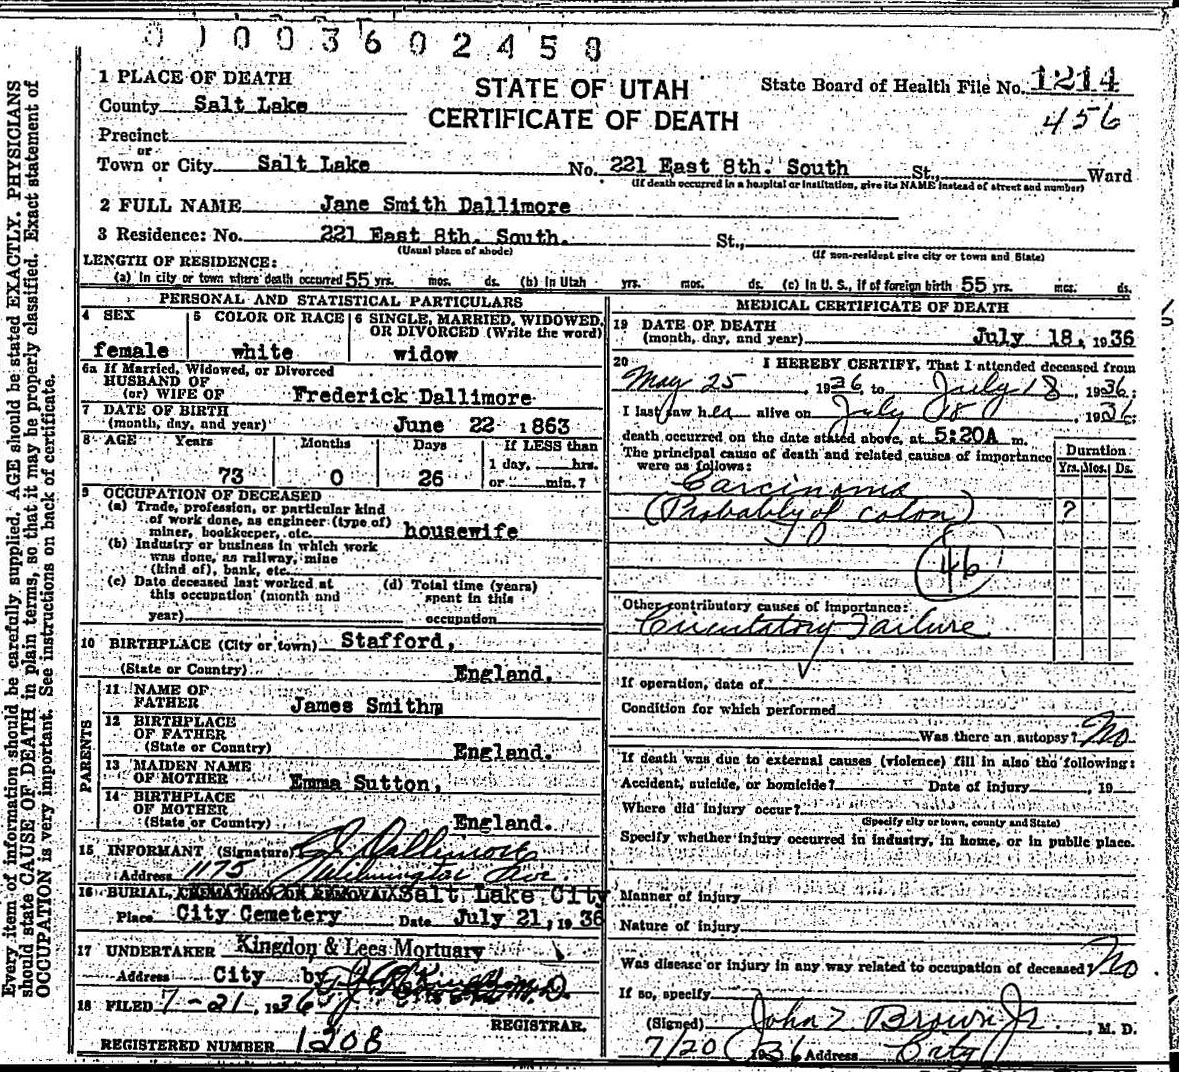 0100360 2458
1 PLACE OF DEATH
County Salt Lake
Precinct
or
Town or City Salt Lake
STATE OF UTAH
CERTIFICATE OF DEATH
State Board of Health File No. 1214
456
No. 221 East 8th. South St., Ward
(If death occurred in a hospital or institution, give its NAME instead of street and number)
2 FULL NAME Jane Smith Dallimore
3 Residence: No. 221 East 8th. South. St.,
(Usual place of abode) (If non-resident give city or town and State)
LENGTH OF RESIDENCE:
(a) In city or town where death occurred 55 yrs. mos. ds. (b) In Utah yrs. mos. ds. (c) In U. S., if of foreign birth 55 yrs. mos. ds.
PERSONAL AND STATISTICAL PARTICULARS
4 SEX
female
5 COLOR OR RACE
white
6 SINGLE, MARRIED, WIDOWED,
OR DIVORCED (Write the word)
widow
6a If Married, Widowed, or Divorced
HUSBAND OF
(or) WIFE OF Frederick Dallimore
7 DATE OF BIRTH
(month, day, and year) June 22 1863
8 AGE Years Months Days If LESS than
73 0 26 1 day, hrs.
or min.?
9 OCCUPATION OF DECEASED
(a) Trade, profession, or particular kind
of work done, as engineer (type of)
miner, bookkeeper, etc. housewife
(b) Industry or business in which work
was done, as railway, mine
(kind of), bank, etc.
(c) Date deceased last worked at
this occupation (month and
year)
(d) Total time (years)
spent in this
occupation
10 BIRTHPLACE (City or town) Stafford,
(State or Country) England,
PARENTS
11 NAME OF
FATHER James Smith
12 BIRTHPLACE
OF FATHER
(State or Country) England.
13 MAIDEN NAME
OF MOTHER Emma Sutton,
14 BIRTHPLACE
OF MOTHER
(State or Country) England.
15 INFORMANT (Signature) Dallimore
Address 1175
16 BURIAL, CREMATION OR REMOVAL Salt Lake City
Place City Cemetery Date July 21, 1936
17 UNDERTAKER Kingdon & Lees Mortuary
Address City by
18 FILED 7-21, 1936
REGISTRAR.
REGISTERED NUMBER 1208
MEDICAL CERTIFICATE OF DEATH
19 DATE OF DEATH
(month, day, and year) July 18, 1936
20 I HEREBY CERTIFY, That I attended deceased from
May 25, 1936, to July 18, 1936;
I last saw her alive on July 18, 1936;
death occurred on the date stated above, at 5:20A m.
The principal cause of death and related causes of importance
were as follows:
Duration
Yrs. Mos. Ds.
Carcinoma
(Probably of colon) ?
46
Other contributory causes of importance:
Circulatory Failure
If operation, date of
Condition for which performed
Was there an autopsy? No
If death was due to external causes (violence) fill in also the following:
Accident, suicide, or homicide? Date of injury, 19
Where did injury occur?
(Specify city or town, county and State)
Specify whether injury occurred in industry, in home, or in public place.
Manner of injury
Nature of injury
Was disease or injury in any way related to occupation of deceased? No
If so, specify
(Signed) John Z Brown Jr., M. D.
7/20 1936 Address City
Every item of information should be carefully supplied. AGE should be stated EXACTLY. PHYSICIANS
should state CAUSE OF DEATH in plain terms, so that it may be properly classified. Exact statement of
OCCUPATION is very important. See instructions on back of certificate.